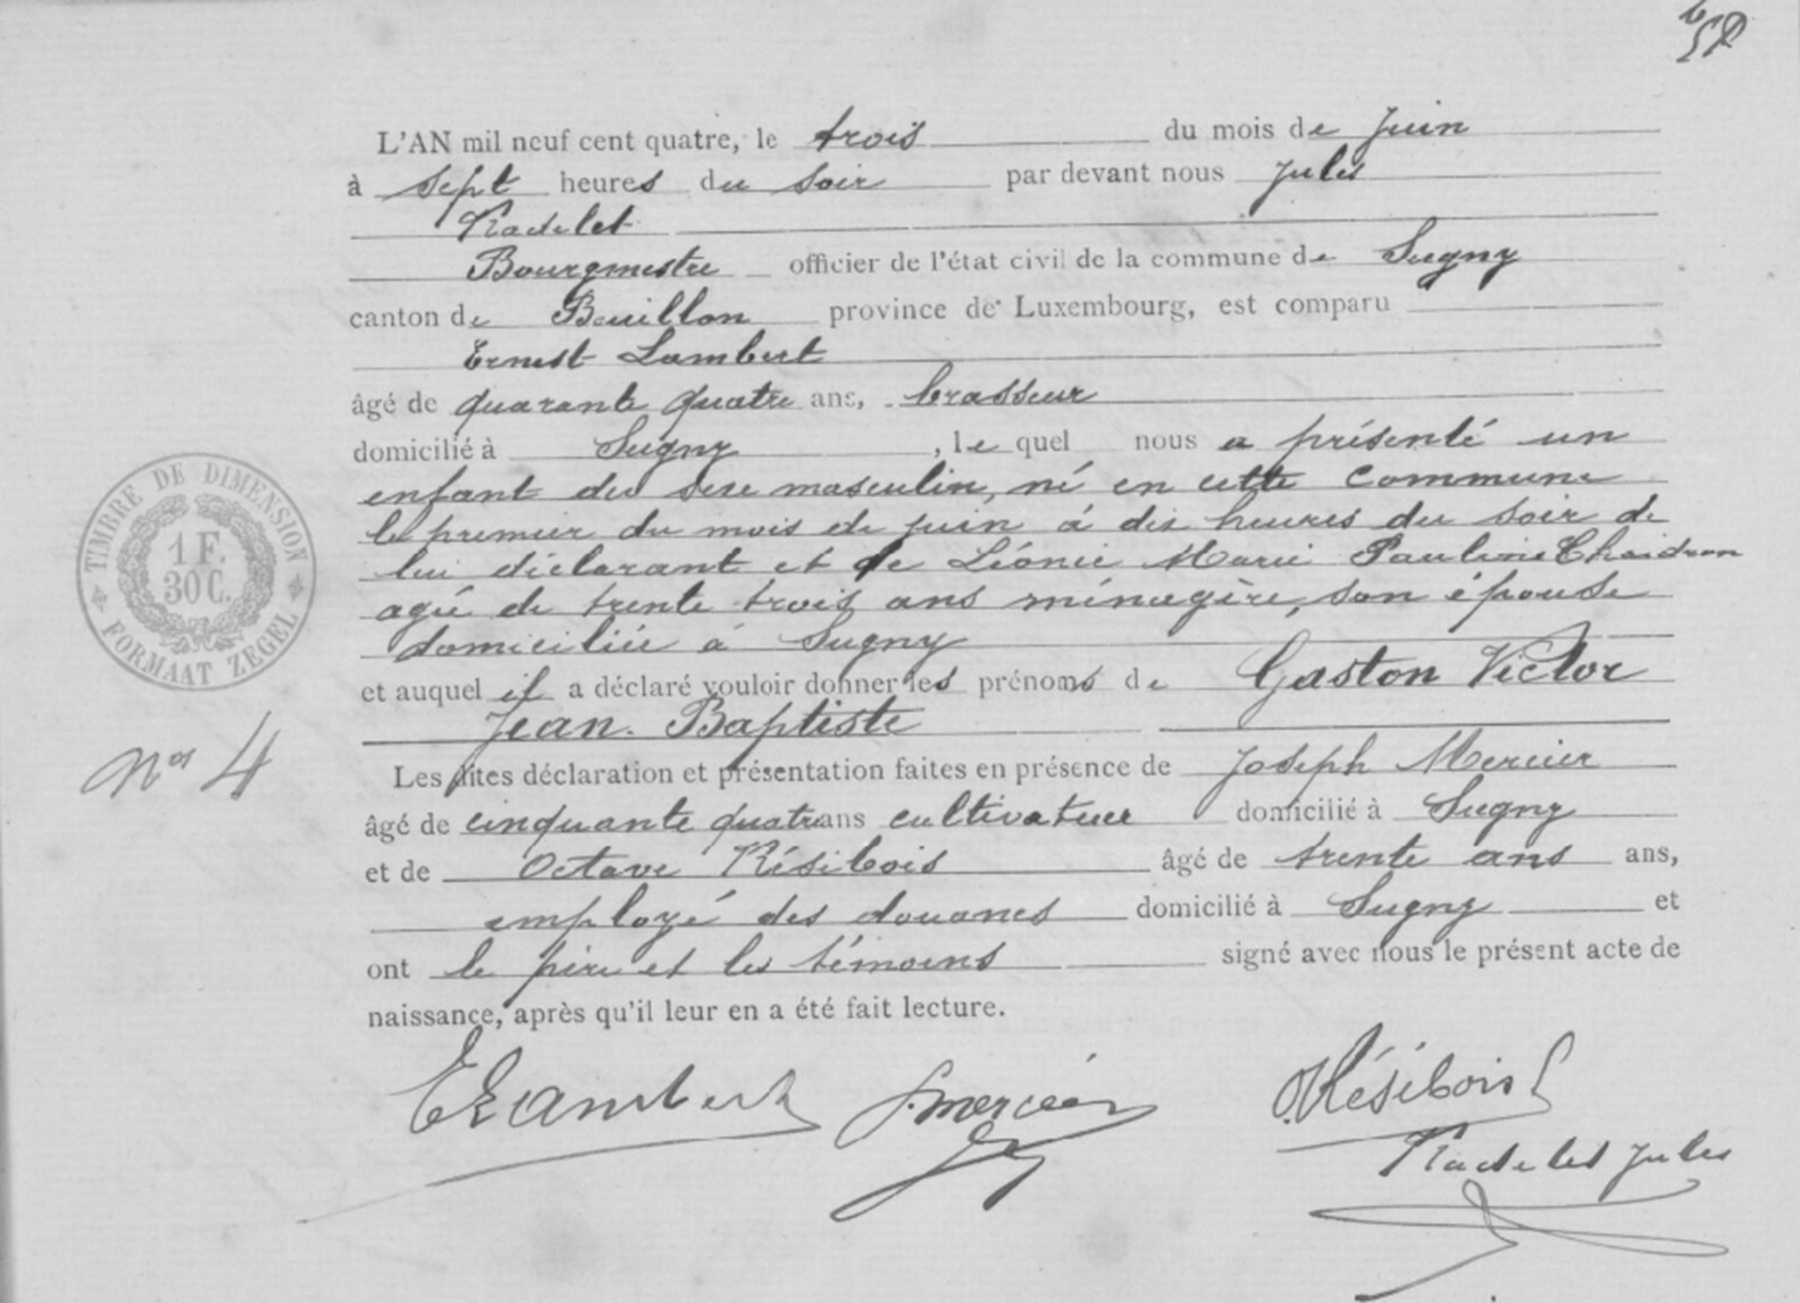 L'AN mil neuf cent quatre, le trois du mois de Juin
à sept heures du soir par devant nous Jules
Radelet
Bourgmestre officier de l'état civil de la commune de Sugny
canton de Bouillon province de Luxembourg, est comparu
Ernest Lambert
âgé de quarante quatre ans, brasseur
domicilié à Sugny, le quel nous a présenté un
enfant du sexe masculin, né en cette commune
le premier du mois de juin à dix heures du soir de
lui déclarant et de Léonie Marie Pauline Chaidron
agée de trente trois ans ménagère, son épouse
domiciliée à Sugny
et auquel il a déclaré vouloir donner les prénoms de Gaston Victor
Jean-Baptiste
Les dites déclaration et présentation faites en présence de Joseph Mercier
âgé de cinquante quatre ans cultivateur domicilié à Sugny
et de Octave Résibois âgé de trente ans ans,
employé des douanes domicilié à Sugny et
ont le père et les témoins signé avec nous le présent acte de
naissance, après qu'il leur en a été fait lecture.
TIMBRE DE DIMENSION
1 F.
30 C.
FORMAAT ZEGEL
No 4
E Lambert J. mercier O. Résibois
Radelet Jules